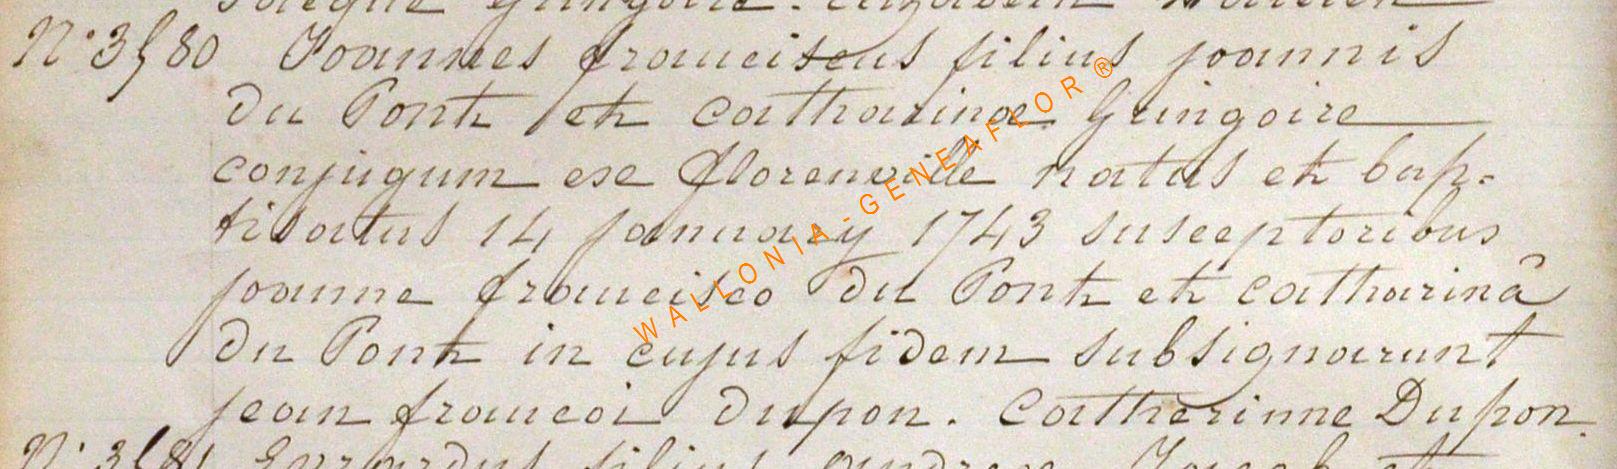 N° 3580 Joannes franciscus filius joannis
du Pont et catharina Gringoire
conjugum ex florenville natus et bap-
tisatus 14 january 1743 susceptoribus
joanne francisco du Pont et catharinâ
du Pont in cujus fidem subsignarunt
jean francoi dupon. Catherinne Dupon.
N° 3581 filius andreæ Joseph et
WALLONIA-GENEAFLOR ®